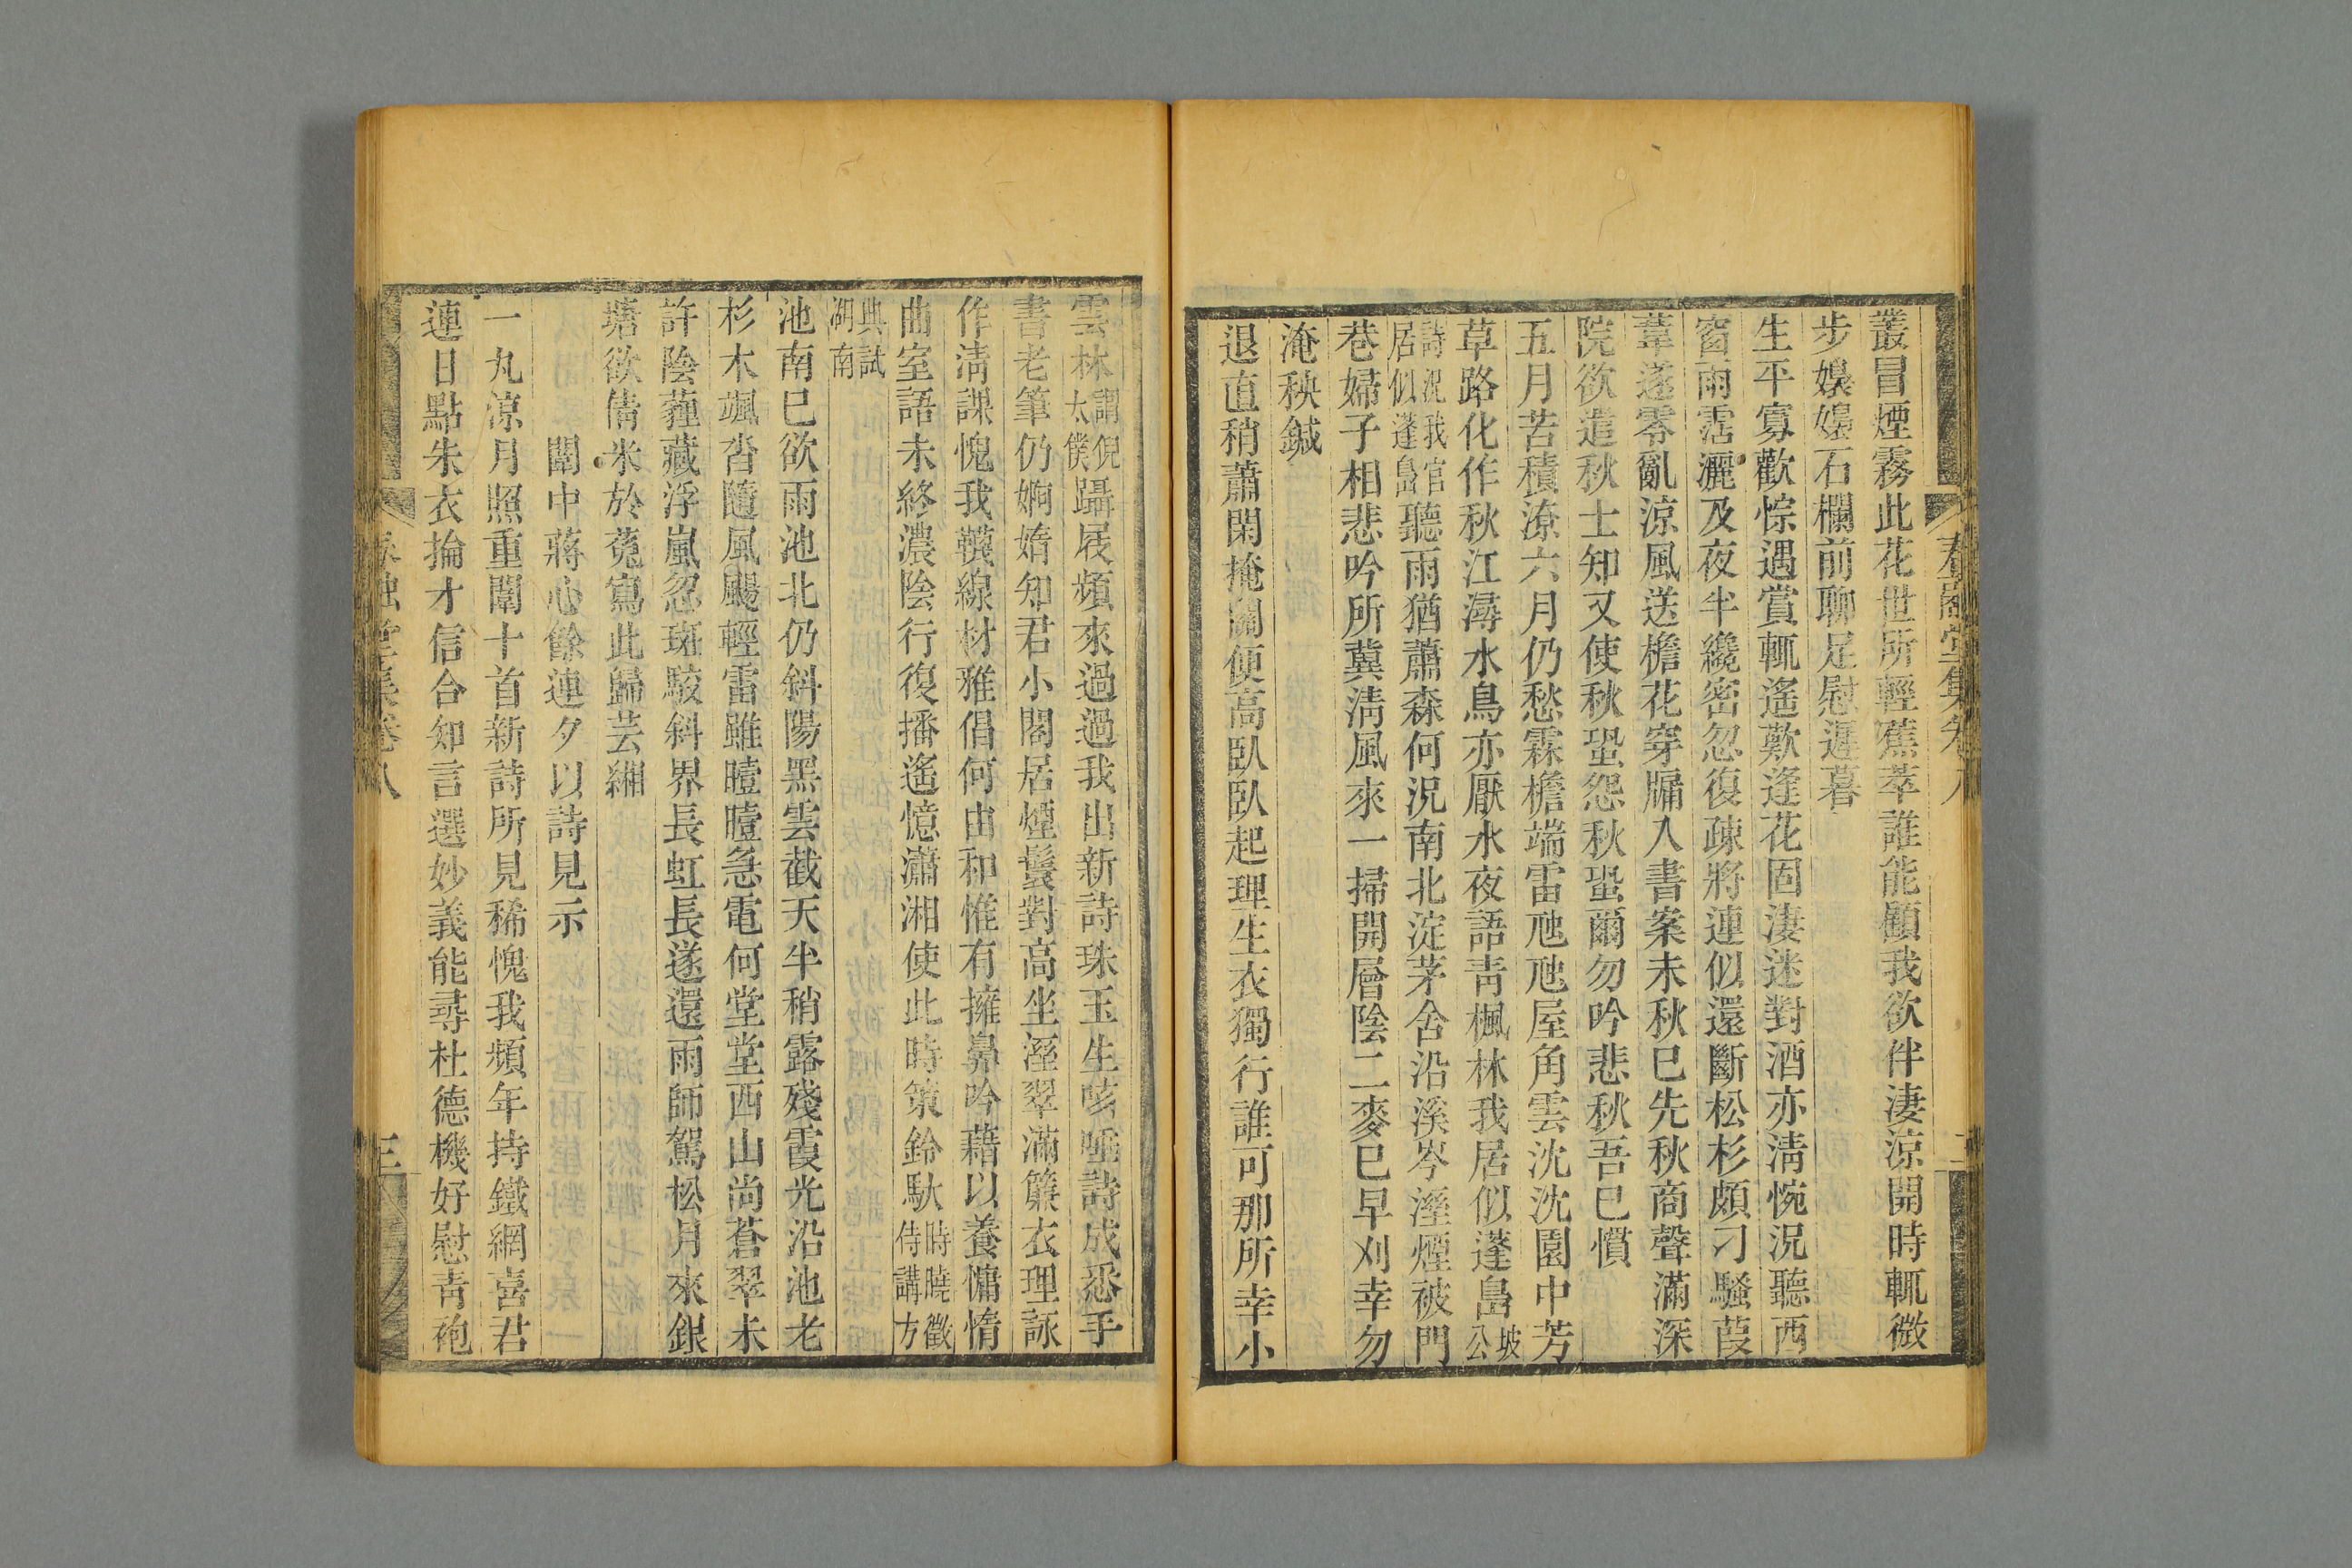 叢冒煙霧此花世所輕蕉萃誰能顧我欲伴淒涼開時輒微
步娛石欄前聊足慰遲暮
生平寡歡悰遇賞輒遙歎逢花固淒迷對酒亦淸惋況聽西
窗雨霑灑及夜半纔密忽復疎將連似還斷松杉頗刁騷葭
葦遂零亂涼風送檐花穿牖入書案未秋已先秋商聲滿深
院欲遣秋士知又使秋蛩怨秋蛩爾勿吟悲秋吾已慣
五月苦積潦六月仍愁霖檐端雷虺虺屋角雲沈沈園中芳
草路化作秋江潯水鳥亦厭水夜語靑楓林我居似蓬島坡公
詩況我官居似蓬島聽雨猶蕭森何況南北淀茅舍沿溪岑溼煙被門
巷婦子相悲吟所冀淸風來一掃開層陰二麥已早刈幸勿
淹秧鍼
退直稍蕭閑掩關便高臥臥起理生衣獨行誰可那所幸小
春融堂集卷八
二
雲林謂倪太僕躡屐頻來過過我出新詩珠玉生咳唾詩成悉手
書老筆仍婀媠知君小閣居煙鬟對高坐溼翠滿簾衣理詠
作淸課愧我襪線材雅倡何由和惟有擁鼻吟藉以養慵惰
曲室語未終濃陰行復播遙憶瀟湘使此時策鈴馱時曉徵侍講方
典試湖南
池南已欲雨池北仍斜陽黑雲截天半稍露殘霞光沿池老
杉木颯沓隨風颺輕雷雖曀曀急電何堂堂西山尚蒼翠未
許陰薶藏浮嵐忽斑駮斜界長虹長遂還雨師駕松月來銀
塘欲倩米於菟寫此歸芸緗
闈中蔣心餘連夕以詩見示
一丸涼月照重闈十首新詩所見稀愧我頻年持鐵網喜君
連日點朱衣掄才信合知言選妙義能尋杜德機好慰靑袍
春融堂集卷八
三